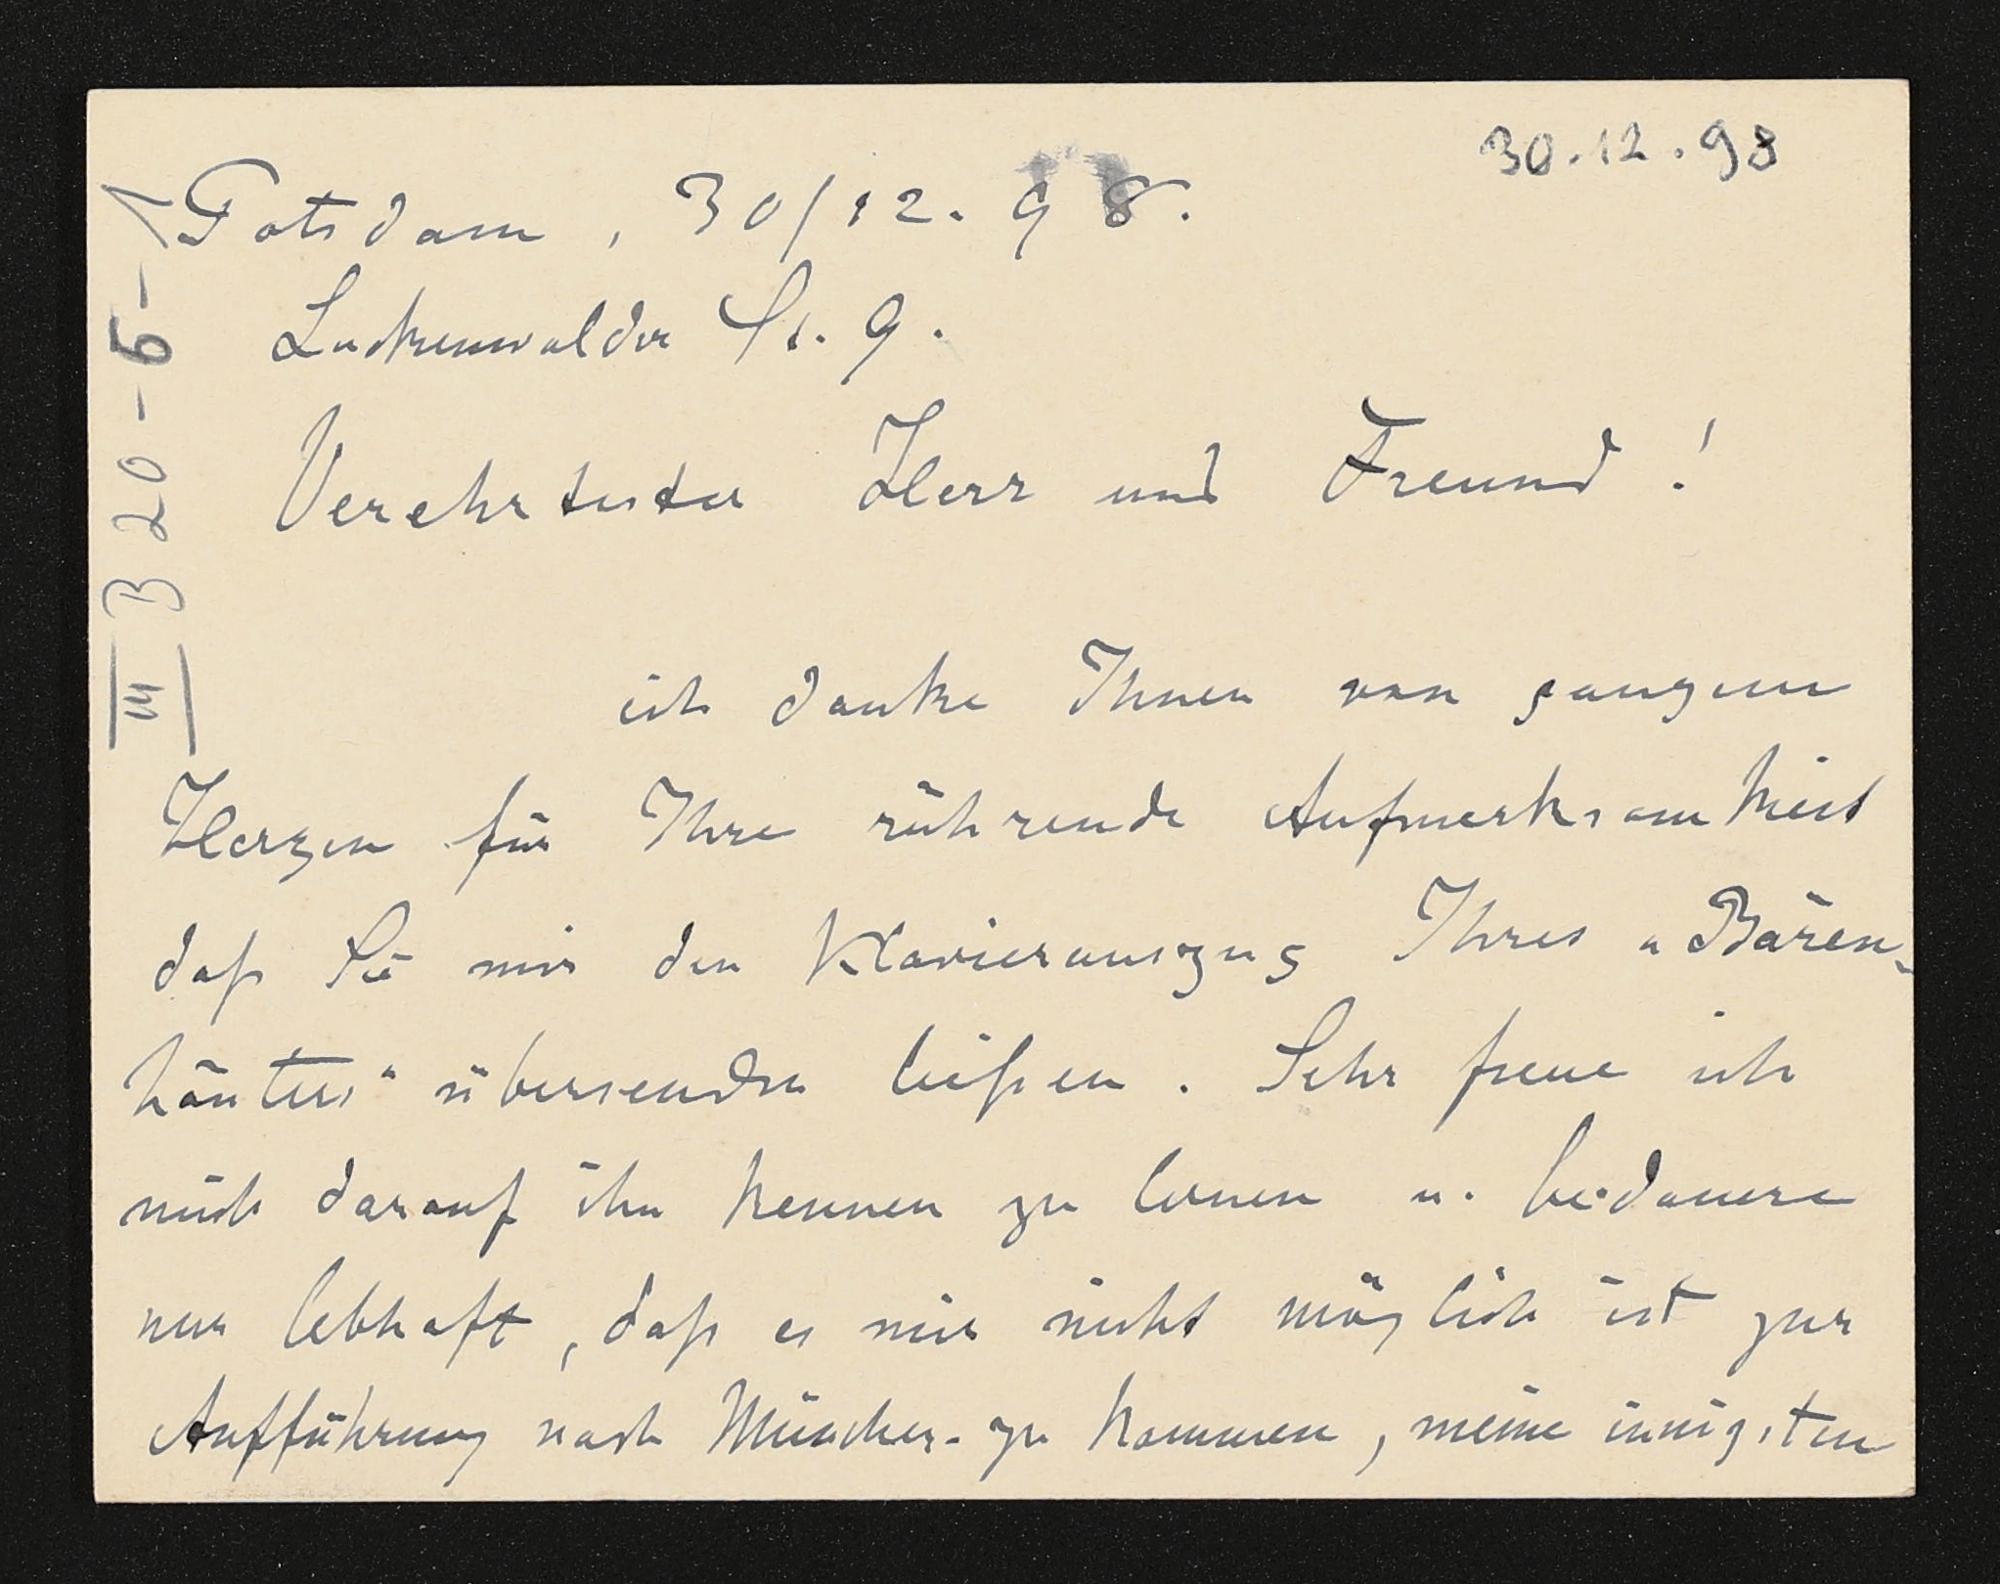 30.12.98
Potsdam, 30/12. 98.
Luckenwalder St. 9.
Verehrtester Herr und Freund!
ich danke Ihnen von ganzem
Herzen für Ihre rührende Aufmerksamkeit
daß Sie mir den Klavierauszug Ihres „Bären-
häuters" übersenden ließen. Sehr freue ich
mich darauf ihn kennen zu lernen u. bedauere
nur lebhaft, daß es mir nicht möglich ist zur
Aufführung nach München zu kommen, meine innigsten
III B 20-5-1